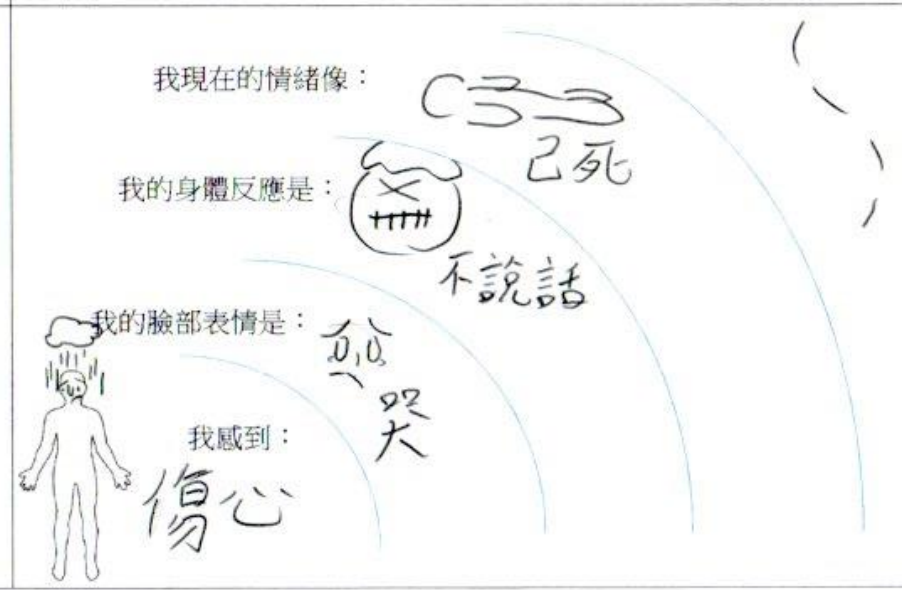 我現在的情緒像：
己死
我的身體反應是：
不說話
我的臉部表情是：
哭
我感到：
傷心